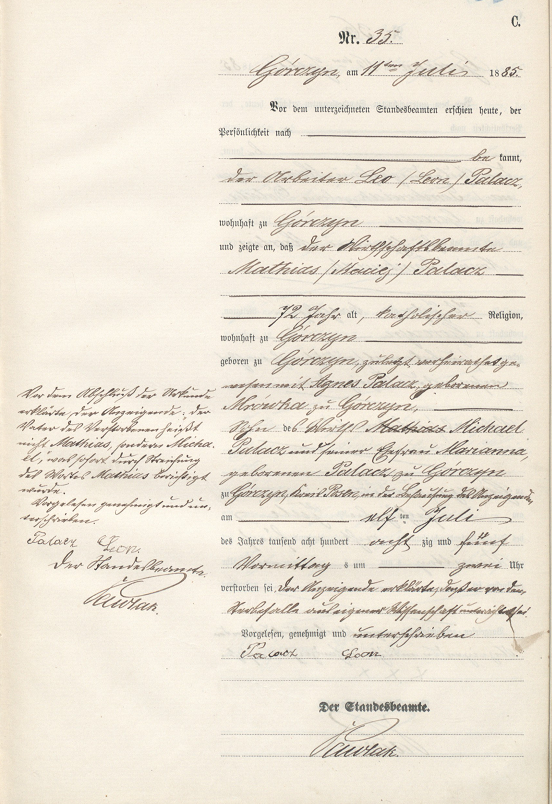 C.
Nr. 35.
Górczyn, am 11ten Juli 1885.
Vor dem unterzeichneten Standesbeamten erschien heute, der
Persönlichkeit nach
be kannt,
der Arbeiter Leo (Leon) Palacz,
wohnhaft zu Górczyn
und zeigte an, daß der Wirthschaftsbeamte
Mathias (Maciej) Palacz
72 Jahr alt, katholischer Religion,
wohnhaft zu Górczyn
geboren zu Górczyn, zuletzt verheirathet ge-
wesen mit Agnes Palacz, geborenen
Mrówka zu Górczyn,
Sohn des Wirths Mathias Michael
Palacz und seiner Ehefrau Marianna,
geborenen Palacz zu Górczyn
zu Górczyn, Kreis Posen, in der Behausung des Anzeigenden
am elf ten Juli
des Jahres tausend acht hundert acht zig und fünf
Vormittag s um zwei Uhr
verstorben sei. Der Anzeigende erklärte, daß er von dem
Sterbefalle aus eigener Wissenschaft unterrichtet sei.
Vorgelesen, genehmigt und unterschrieben
Palacz Leon
Der Standesbeamte.
Vor dem Abschluß der Urkunde
erklärte der Anzeigende, der
Vater des Verstorbenen heißt
nicht Mathias, sondern Micha-
el, was sofort durch Streichung
des Wortes Mathias berichtigt
wurde.
Vorgelesen genehmigt und un-
terschrieben.
Palacz Leon
Der Standesbeamte.